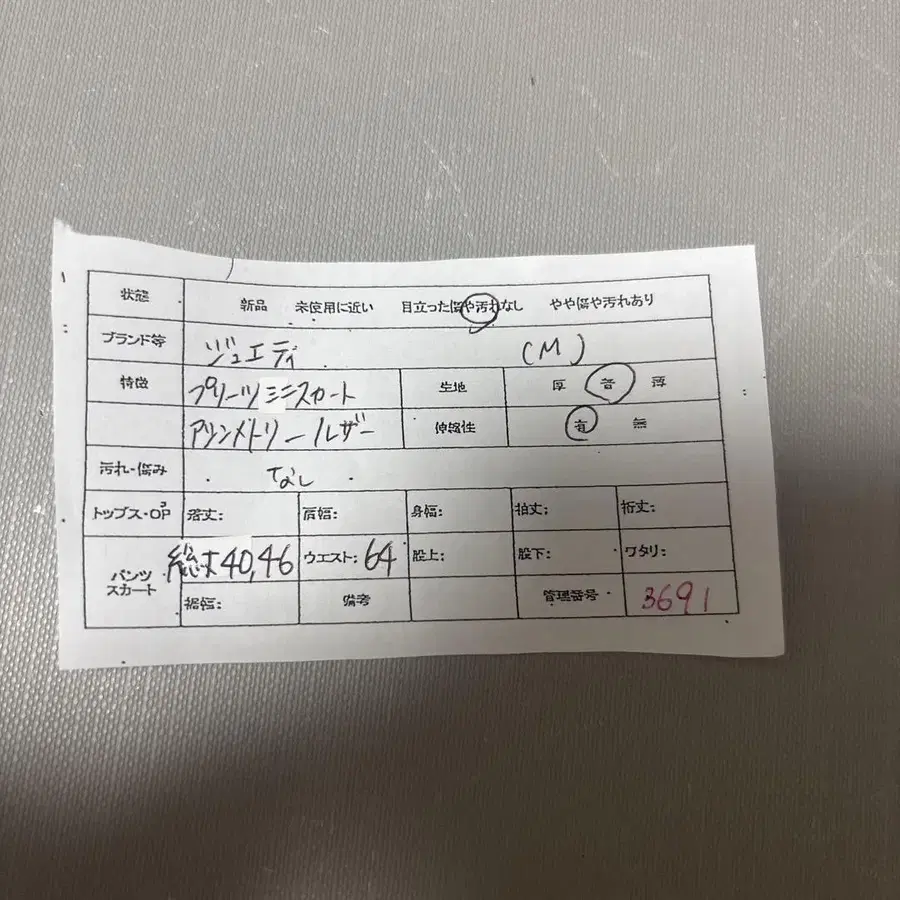 状態 新品 未使用に近い 目立った傷や汚れなし やや傷や汚れあり
ブランド等 ジュエティ (M)
特徴 プリーツミニスカート 生地 厚 普 薄
アシンメトリーレザー 伸縮性 有 無
汚れ・傷み なし
トップス・OP 着丈: 肩幅: 身幅: 袖丈: 裄丈:
パンツ スカート 総丈40,46 ウエスト: 64 股上: 股下: ワタリ:
裾幅: 備考 管理番号 3691